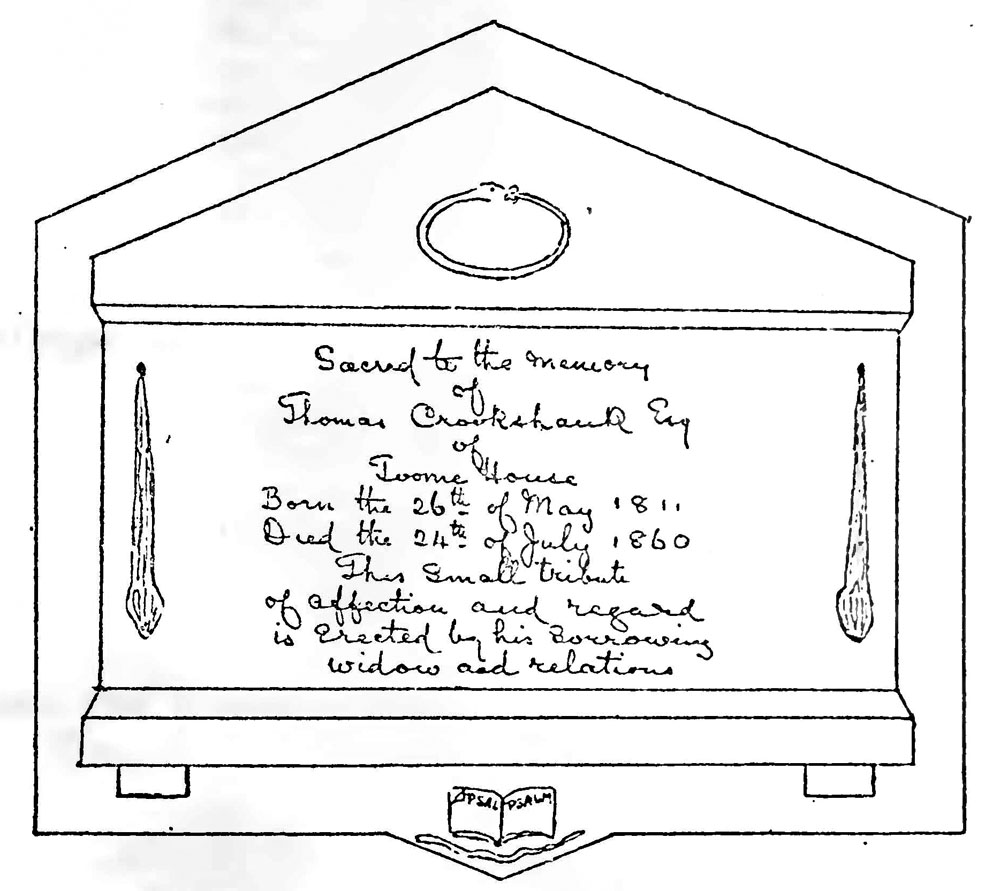 Sacred to the memory
of
Thomas Crookshank Esq
of
Twome House
Born the 26th of May 1811
Died the 24th of July 1860
This Small tribute
of affection and regard
is Erected by his Sorrowing
widow and relations
PSAL PSALM